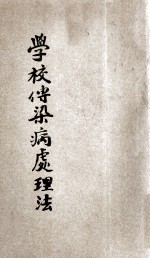 學校傳染病處理法